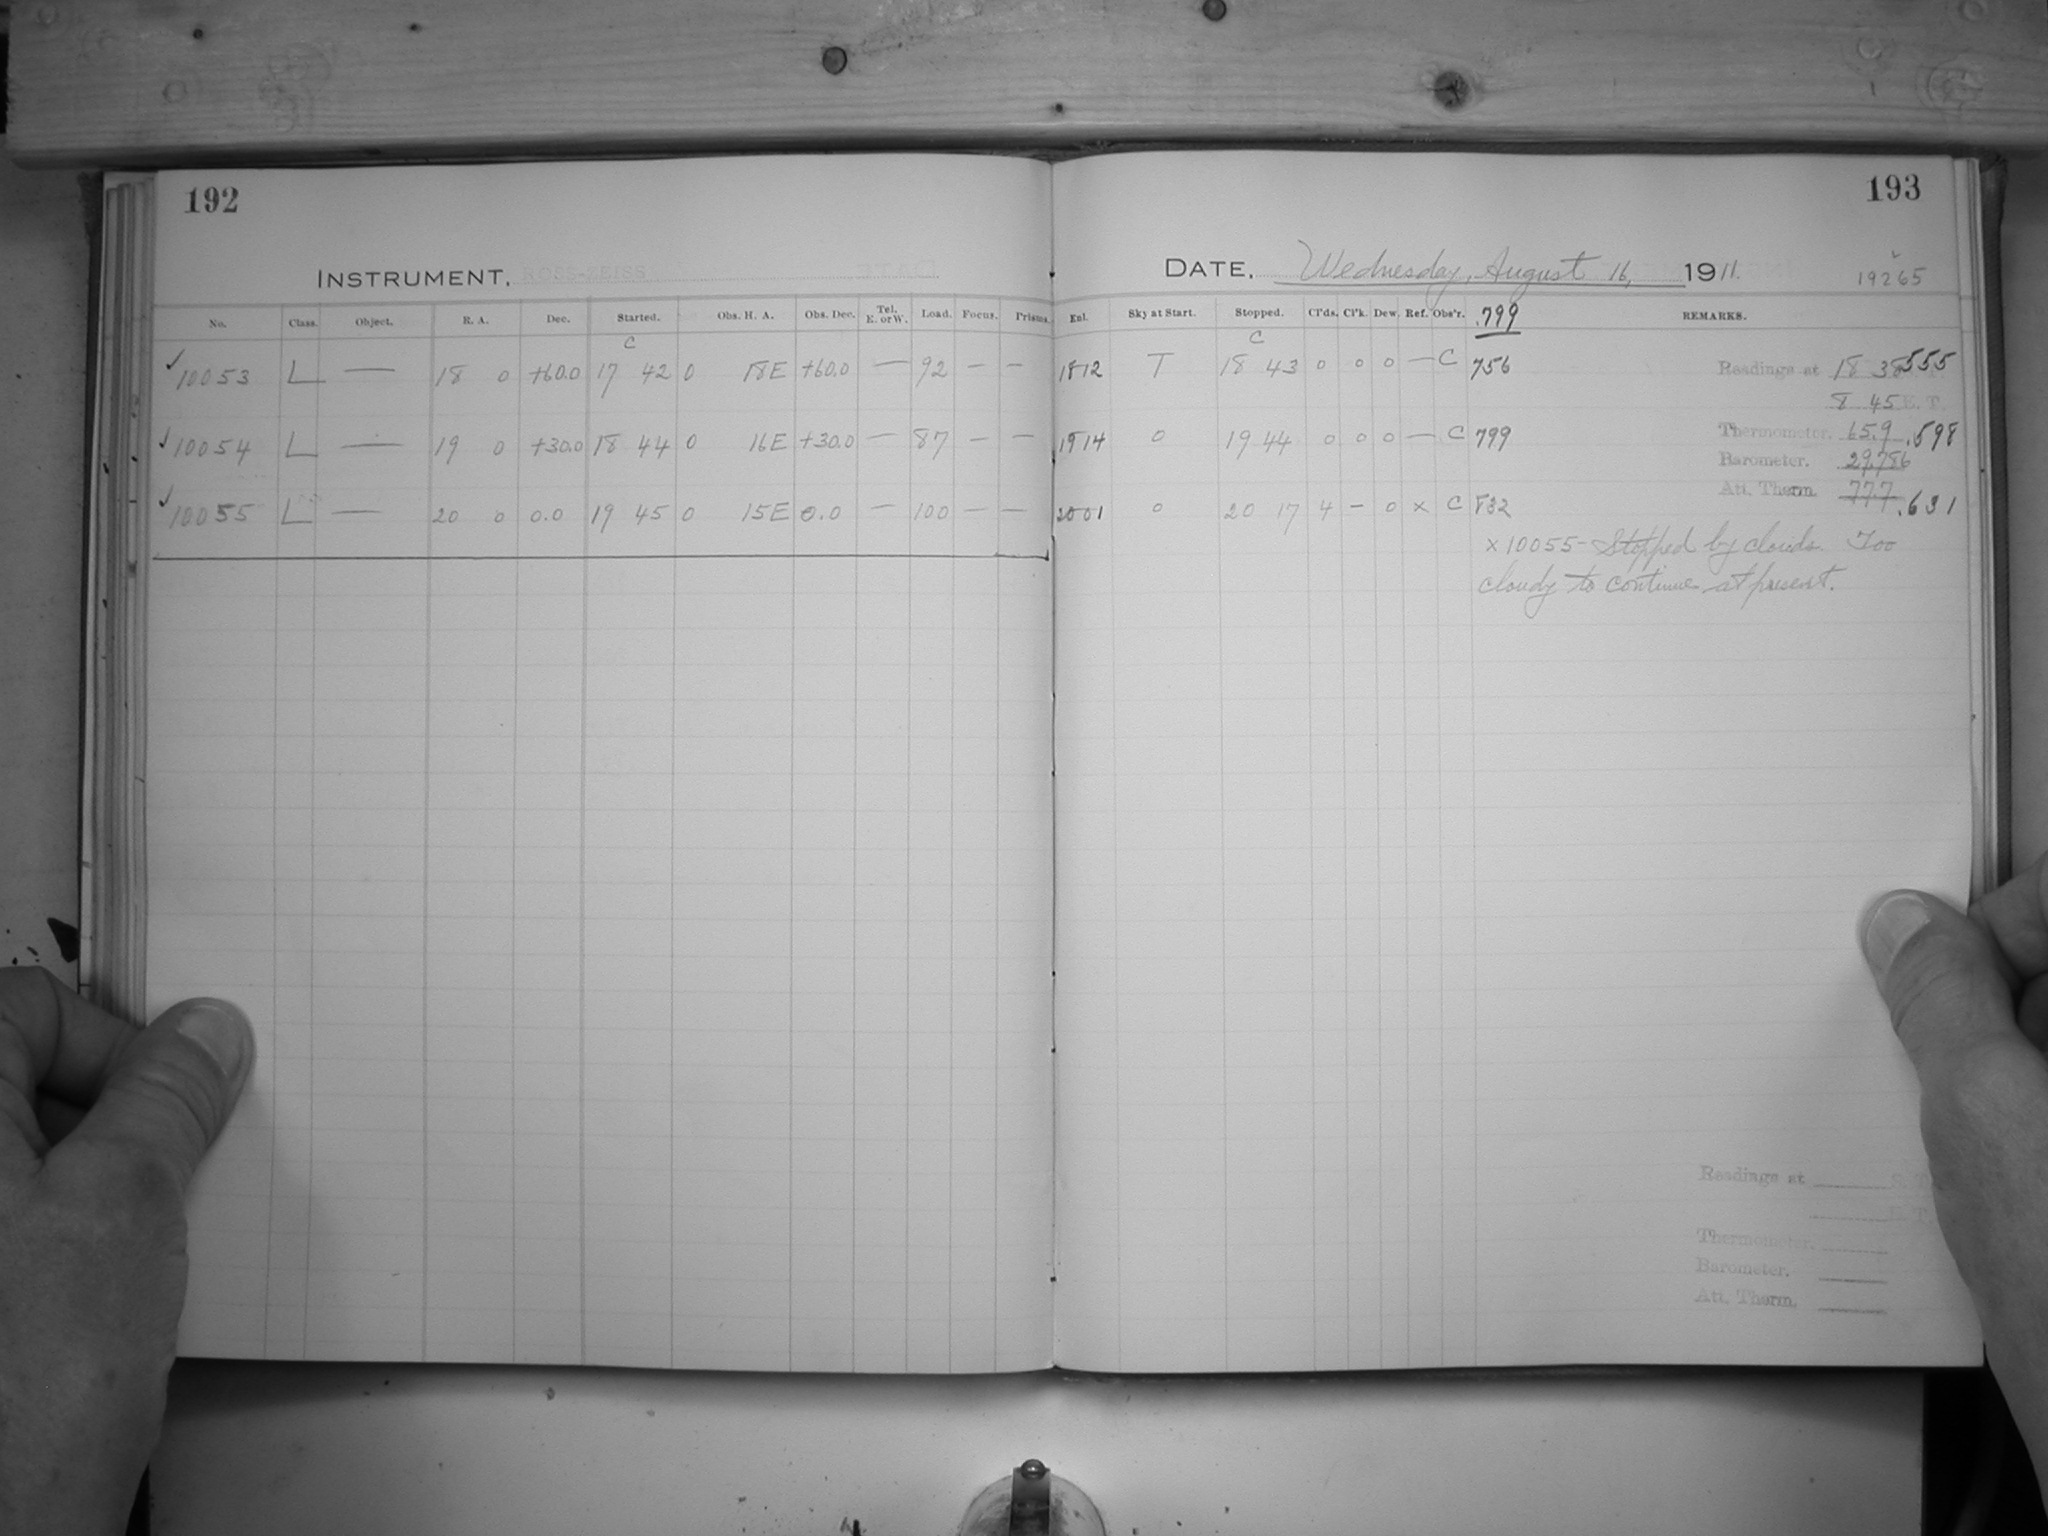 192
193
INSTRUMENT, ROSS-ZEISS
DATE, Wednesday, August 16, 1911.
19265
No. Class. Object. R. A. Dec. Started. Obs. H. A. Obs. Dec. Tel. E. or W. Load. Focus. Prisms.
Enl. Sky at Start. Stopped. Cl'ds. Cl'k. Dew. Ref. Obs'r. .799 REMARKS.
C
C
✓ 10053 L — 18 0 +60.0 17 42 0 18E +60.0 — 92 — —
1812 T 18 43 0 0 0 — C 756
Readings at 18 38 555
8 45 E. T.
✓ 10054 L — 19 0 +30.0 18 44 0 16E +30.0 — 87 — —
1914 0 19 44 0 0 0 — C 799
Thermometer. 65.9 .598
Barometer. 29.786
Att. Therm. 77.7
.631
✓ 10055 L — 20 0 0.0 19 45 0 15E 0.0 — 100 — —
2001 0 20 17 4 – 0 x C 832
x 10055 - Stopped by clouds. Too
cloudy to continue at present.
Readings at S. T.
E. T.
Thermometer.
Barometer.
Att. Therm.